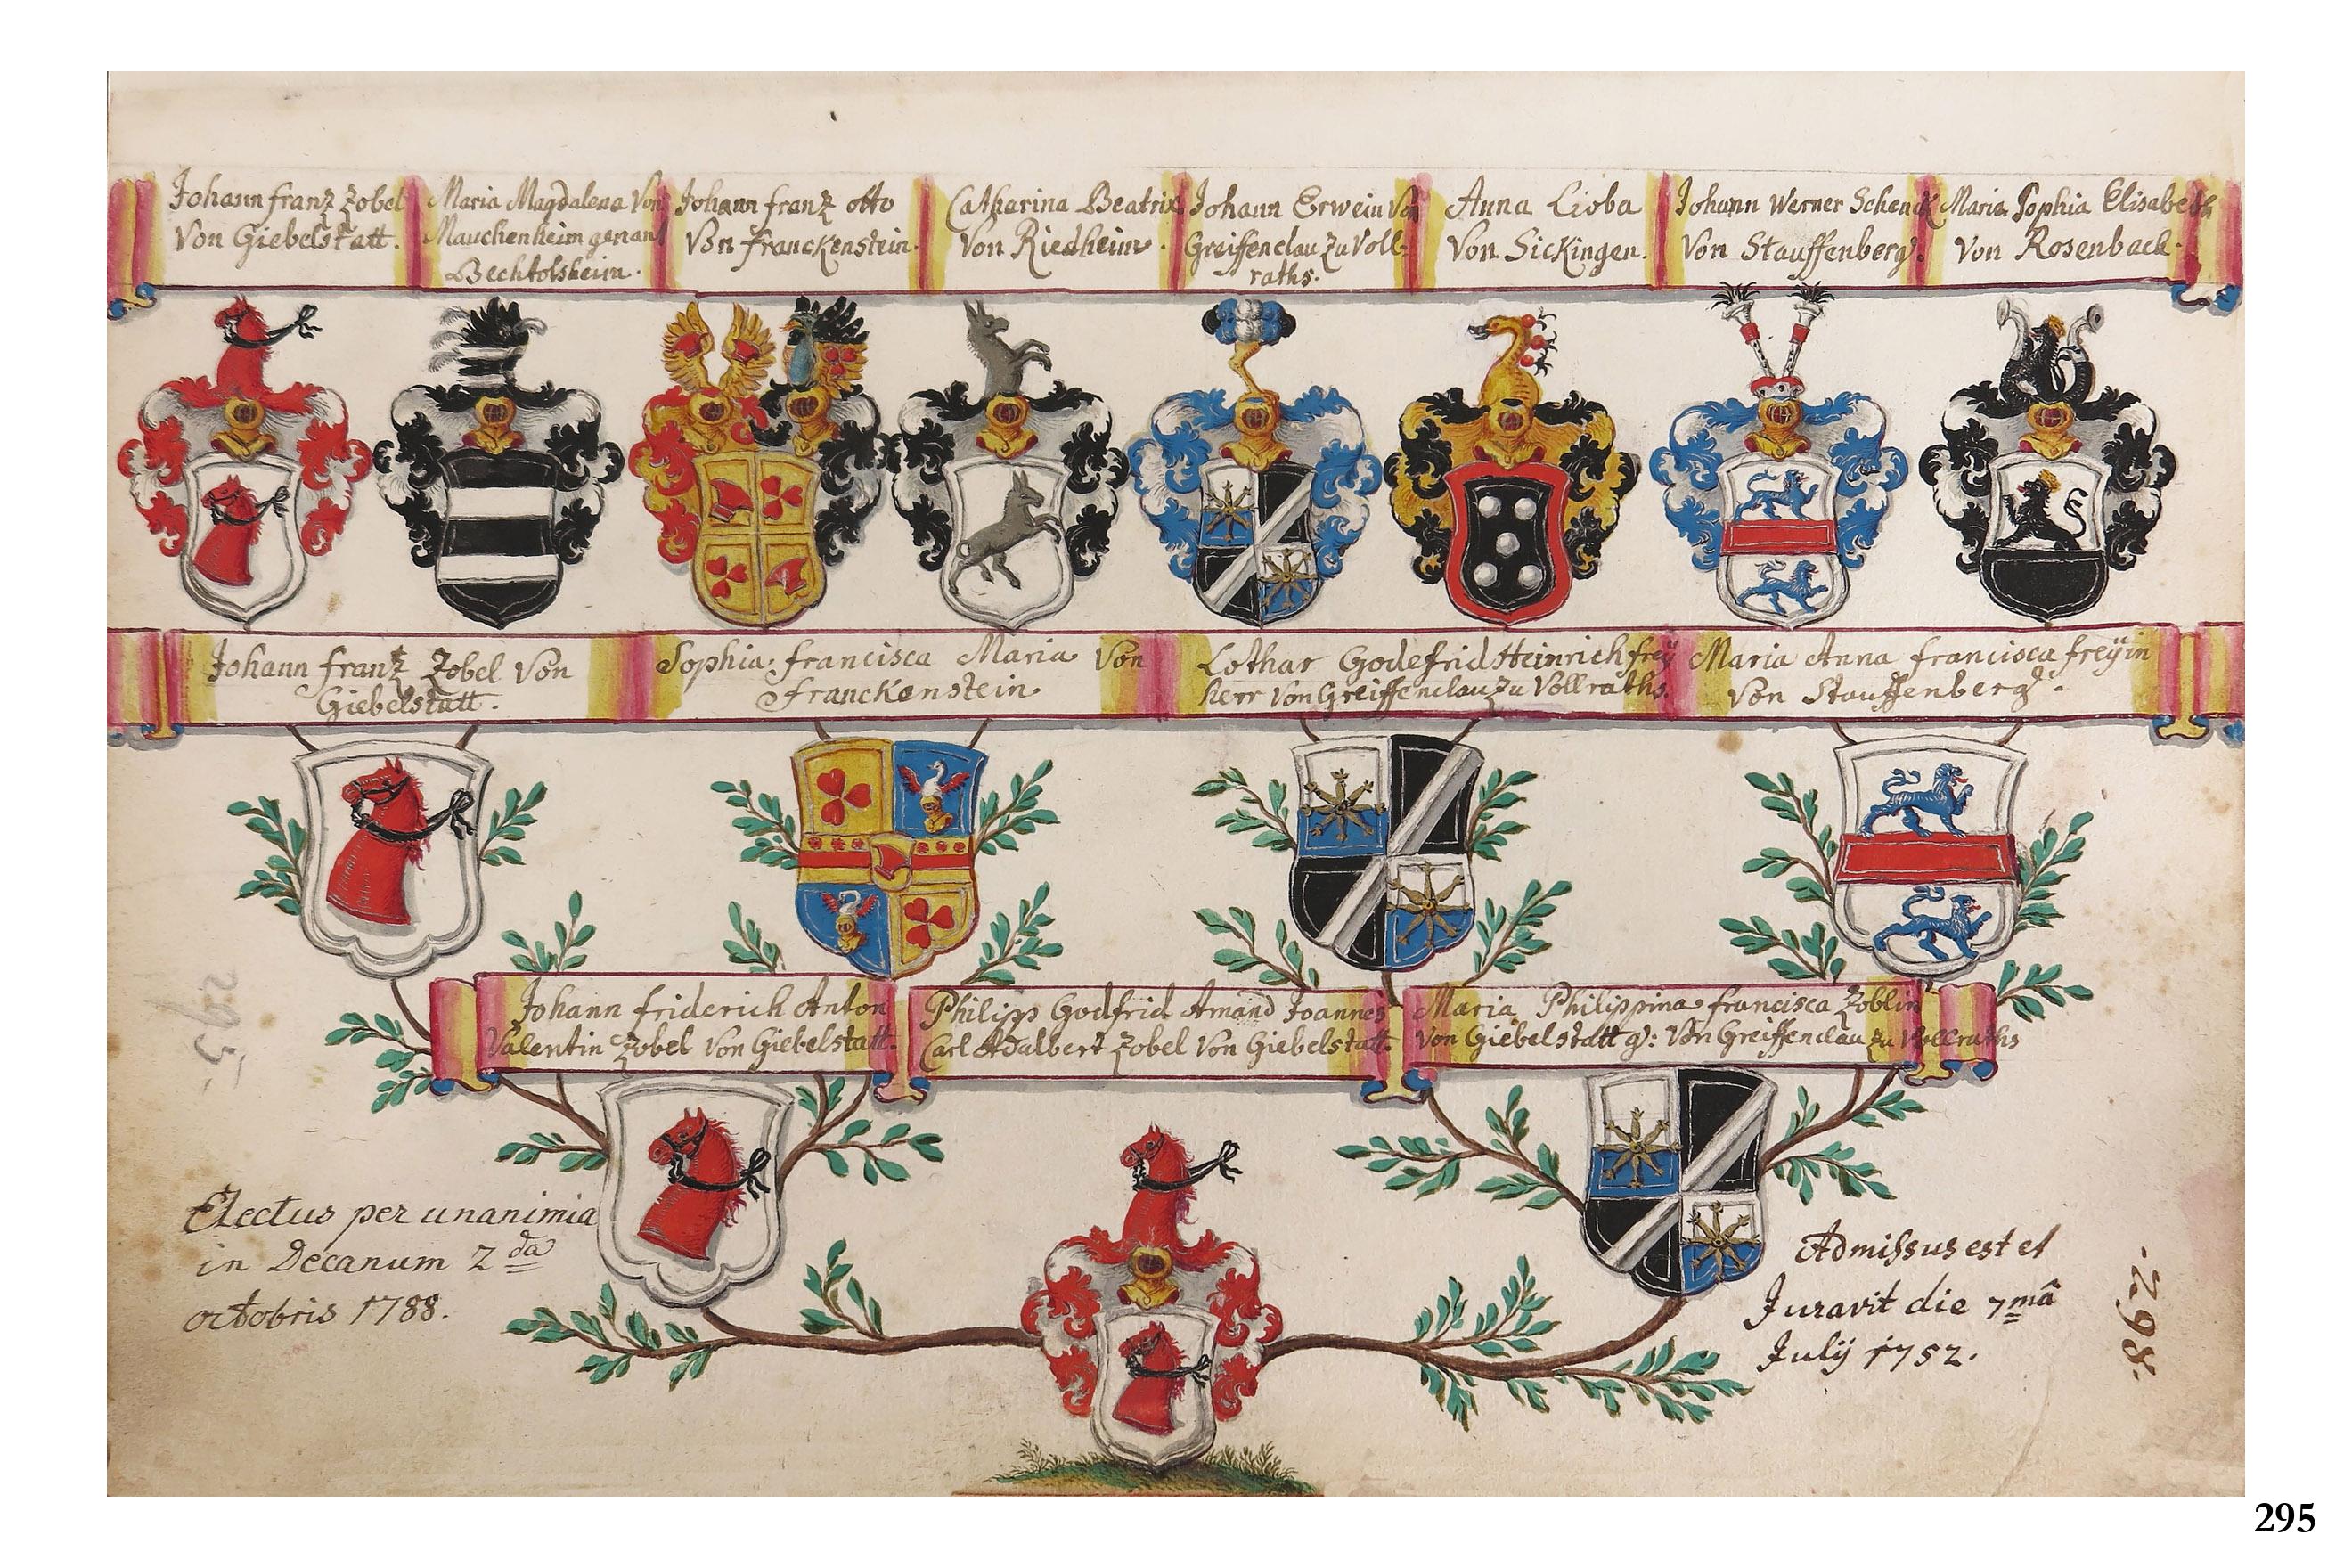 Johann frantz Zobel
Von Giebelstatt.
Maria Magdalena Von
Mauchenheim genant
Bechtolsheim.
Johann frantz otto
Von franckenstein.
Catharina Beatrix
Von Riedheim.
Johann Erwein Von
Greiffenclau zu Voll-
raths.
Anna Lioba
Von Sickingen.
Johann Werner Schenck
Von Stauffenberg.
Maria Sophia Elisabeth
Von Rosenbach.
Johann frantz Zobel Von
Giebelstatt.
Sophia francisca Maria Von
franckenstein
Lothar Godefrid Heinrich freÿ
herr Von Greiffenclau zu Vollraths.
Maria Anna francisca freÿin
Von Stauffenberg.
Johann friderich Anton
Valentin Zobel Von Giebelstatt.
Philipp Godfrid Amand Joannes
Carl Adalbert Zobel Von Giebelstatt.
Maria Philippina francisca Zoblin
Von Giebelstatt g: Von Greiffenclau zu Vollraths
Electus per unanimia
in Decanum 2da
octobris 1788.
Admissus est et
Juravit die 7mâ
Julÿ 1752.
295.
298.
295